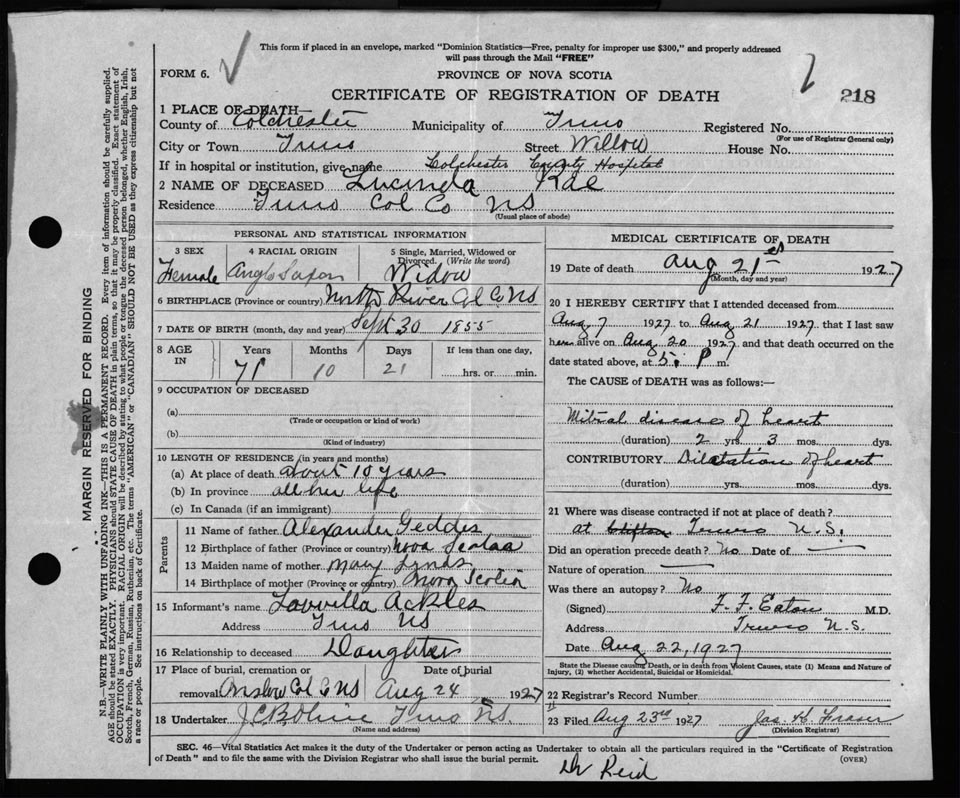 This form if placed in an envelope, marked "Dominion Statistics—Free, penalty for improper use $300," and properly addressed
will pass through the Mail "FREE"
FORM 6.
PROVINCE OF NOVA SCOTIA
CERTIFICATE OF REGISTRATION OF DEATH
218
1 PLACE OF DEATH—
County of Colchester Municipality of Truro Registered No.
(For use of Registrar General only)
City or Town Truro Street Willow House No.
If in hospital or institution, give name Colchester County Hospital
2 NAME OF DECEASED Lucinda Rae
Residence Truro Col Co NS
(Usual place of abode)
PERSONAL AND STATISTICAL INFORMATION
3 SEX 4 RACIAL ORIGIN 5 Single, Married, Widowed or
Divorced. (Write the word)
Female Anglo Saxon Widow
6 BIRTHPLACE (Province or country) North River Col Co NS
7 DATE OF BIRTH (month, day and year) Sept 30 1855
8 AGE IN Years Months Days If less than one day,
71 10 21 hrs. or min.
9 OCCUPATION OF DECEASED
(a)
(Trade or occupation or kind of work)
(b)
(Kind of industry)
10 LENGTH OF RESIDENCE (in years and months)
(a) At place of death about 10 years
(b) In province all her life
(c) In Canada (if an immigrant)
Parents
11 Name of father Alexander Geddes
12 Birthplace of father (Province or country) Nova Scotia
13 Maiden name of mother Mary Lynds
14 Birthplace of mother (Province or country) Nova Scotia
15 Informant's name Lovvilla Ackles
Address Truro NS
16 Relationship to deceased Daughter
17 Place of burial, cremation or Date of burial
removal Onslow Col Co NS Aug 24 1927
18 Undertaker Truro NS.
(Name and address)
MEDICAL CERTIFICATE OF DEATH
19 Date of death Aug 21st 1927
(Month, day and year)
20 I HEREBY CERTIFY that I attended deceased from
Aug 7 1927 to Aug 21 1927 that I last saw
her alive on Aug 20 1927 and that death occurred on the
date stated above, at 5. P m.
The CAUSE of DEATH was as follows:—
Mitral disease of heart
(duration) 2 yrs. 3 mos. dys.
CONTRIBUTORY Dilatation of heart
(duration) yrs. mos. dys.
21 Where was disease contracted if not at place of death?
at Clifton Truro N.S.
Did an operation precede death? No Date of
Nature of operation
Was there an autopsy? No
(Signed) F. F. Eaton M.D.
Address Truro N.S.
Date Aug 22, 1927
State the Disease causing Death, or in death from Violent Causes, state (1) Means and Nature of
Injury, (2) whether Accidental, Suicidal or Homicidal.
22 Registrar's Record Number
23 Filed Aug 23rd 1927 Jas. H. Fraser
(Division Registrar)
SEC. 46—Vital Statistics Act makes it the duty of the Undertaker or person acting as Undertaker to obtain all the particulars required in the "Certificate of Registration
of Death" and to file the same with the Division Registrar who shall issue the burial permit.
(OVER)
Dr Reid
MARGIN RESERVED FOR BINDING
N.B.—WRITE PLAINLY WITH UNFADING INK—THIS IS A PERMANENT RECORD. Every item of information should be carefully supplied.
AGE should be stated EXACTLY. PHYSICIANS should STATE CAUSE OF DEATH in plain terms, so that it may be properly classified. Exact statement of
OCCUPATION is very important. RACIAL ORIGIN will be described by stating to what people or tongue the deceased person belonged, whether English, Irish,
Scotch, French, German, Russian, Ruthenian, etc. The terms "AMERICAN" or "CANADIAN" SHOULD NOT BE USED as they express citizenship but not
a race or people. See instructions on back of Certificate.